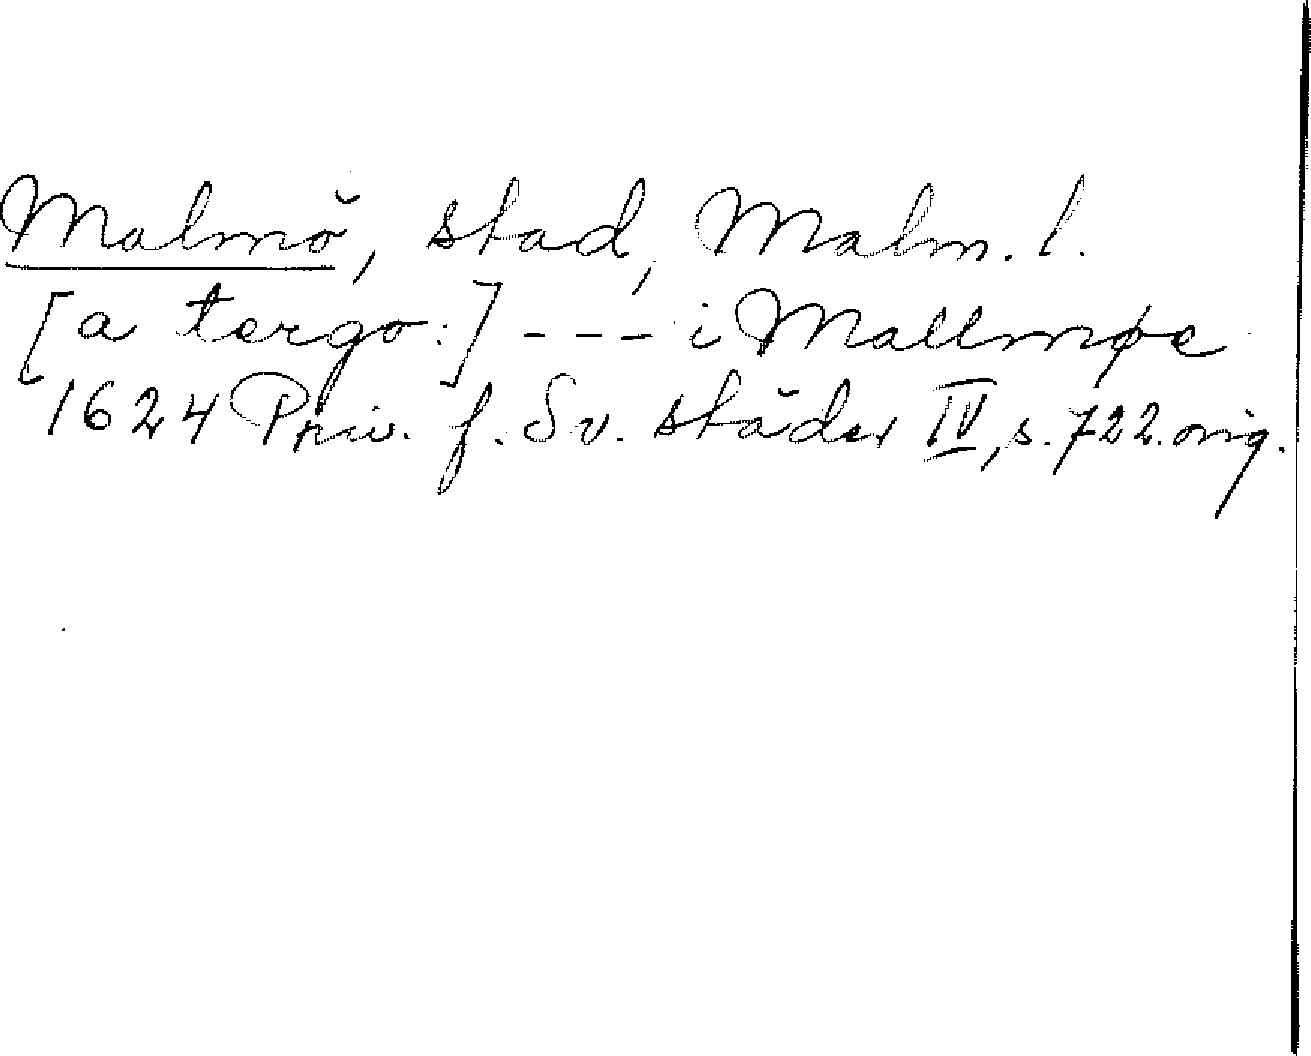 Malmö, stad, Malm. l.
[a tergo:] - - - i Mallmøe
1624 Priv. f. Sv. städer IV, s. 722. orig.